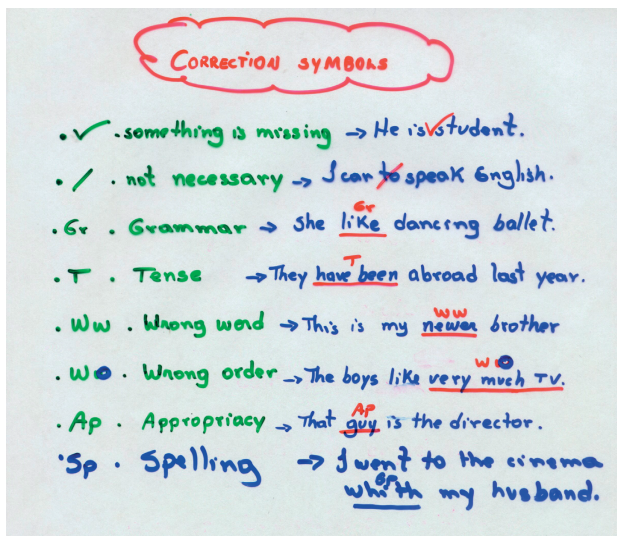 CORRECTION SYMBOLS
. ✓ . something is missing → He is ✓ student.
. / . not necessary → I can to speak English.
Gr
. Gr . Grammar → She like dancing ballet.
T
. T . Tense → They have been abroad last year.
WW
. Ww . Wrong word → This is my newer brother
WO
. WO . Wrong order → The boys like very much TV.
AP
. Ap . Appropriacy → That guy is the director.
. Sp . Spelling → I went to the cinema
Sp
whith my husband.